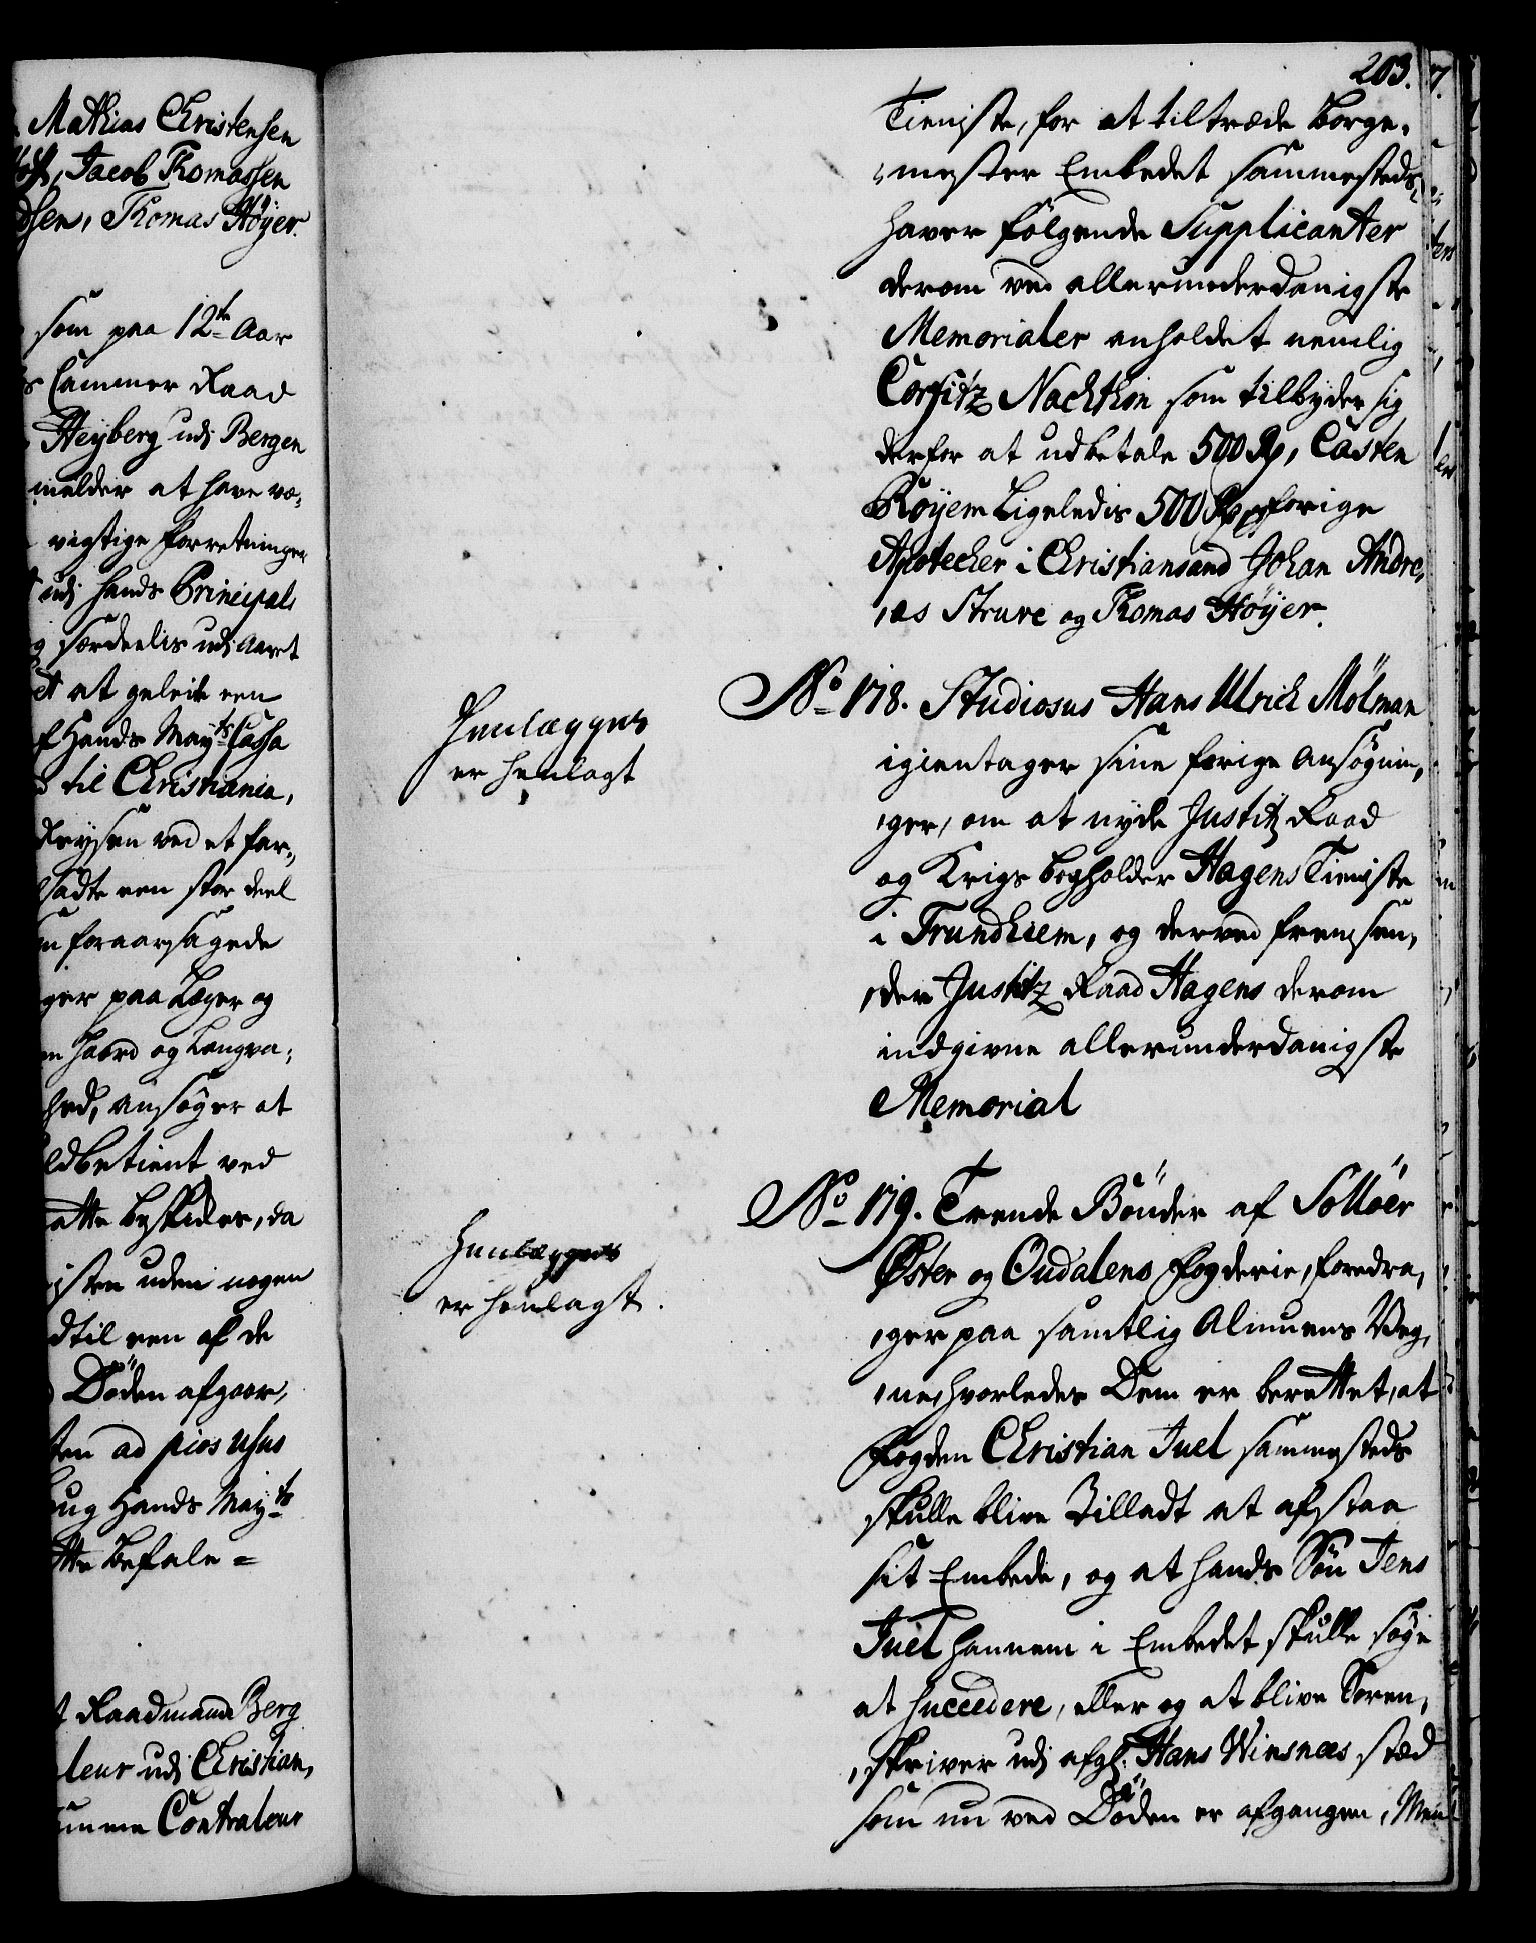 Mathias Christensen
Jacob Thomassen
Thomas Höyer.
som paa 12te Aar
Cammer Raad
Heyberg udj Bergen
melder at have væ,
vigtige forretninger
udj hands Principals
særdeelis udj Aaret
at geleite een
Hands Mayts Cassa
til Christiania,
Reysen ved et far,
sadte een stor deel
foraarsagede
paa Læger og
haard og Langva,
hed, ansöger at
betient ved
atte beskikkes, da
uden nogen
til een af de
Döden afgaar,
ad pios usus
Hands Mayts
Befale =
Raadmand Berg
leur udj Christian,
Contraleur
203.
Tieniste, for at tiltræde Borge,
,mester Embedet sammesteds,
haver fölgende Supplicanter
derom ved allerunderdanigste
Memorialer anholdet nemlig
Corfitz Nachthon som tilbyder sig
derfor at udbetale 500 Rd, Casten
Röyem Ligeledis 500 Rd forige
Apotecher i Christiansand Johan Andre,
,as Struve og Thomas Höyer.
Henlægges
er henlagt
No 178. Studiosus Hans Ulrich Mölman
igientager sine forige Ansögnin,
,ger, om at nyde Justitz Raad
og Krigs bogholder Hagens Tieniste
i Trundhiem, og derved fremsen,
,der Justitz Raad Hagens derom
indgivne allerunderdanigste
Memorial
Henlægges
er henlagt.
No 179. Trende Bönder af Sollöer
Øster og Oudalens fogderie, foredra,
,ger paa samtlig Almuens Veg,
,ne, hvorledes Dem er berettet, at
fogden Christian Juel sammesteds
skulle blive Tilladt at afstaa
sit Embede, og at hands Sön Jens
Juel hannem i Embedet skulle söge
at succedere, eller og at blive Soren,
,skriver udj afgl. Hans Winsnæs stæd
som nu ved Döden er afgangen, Men